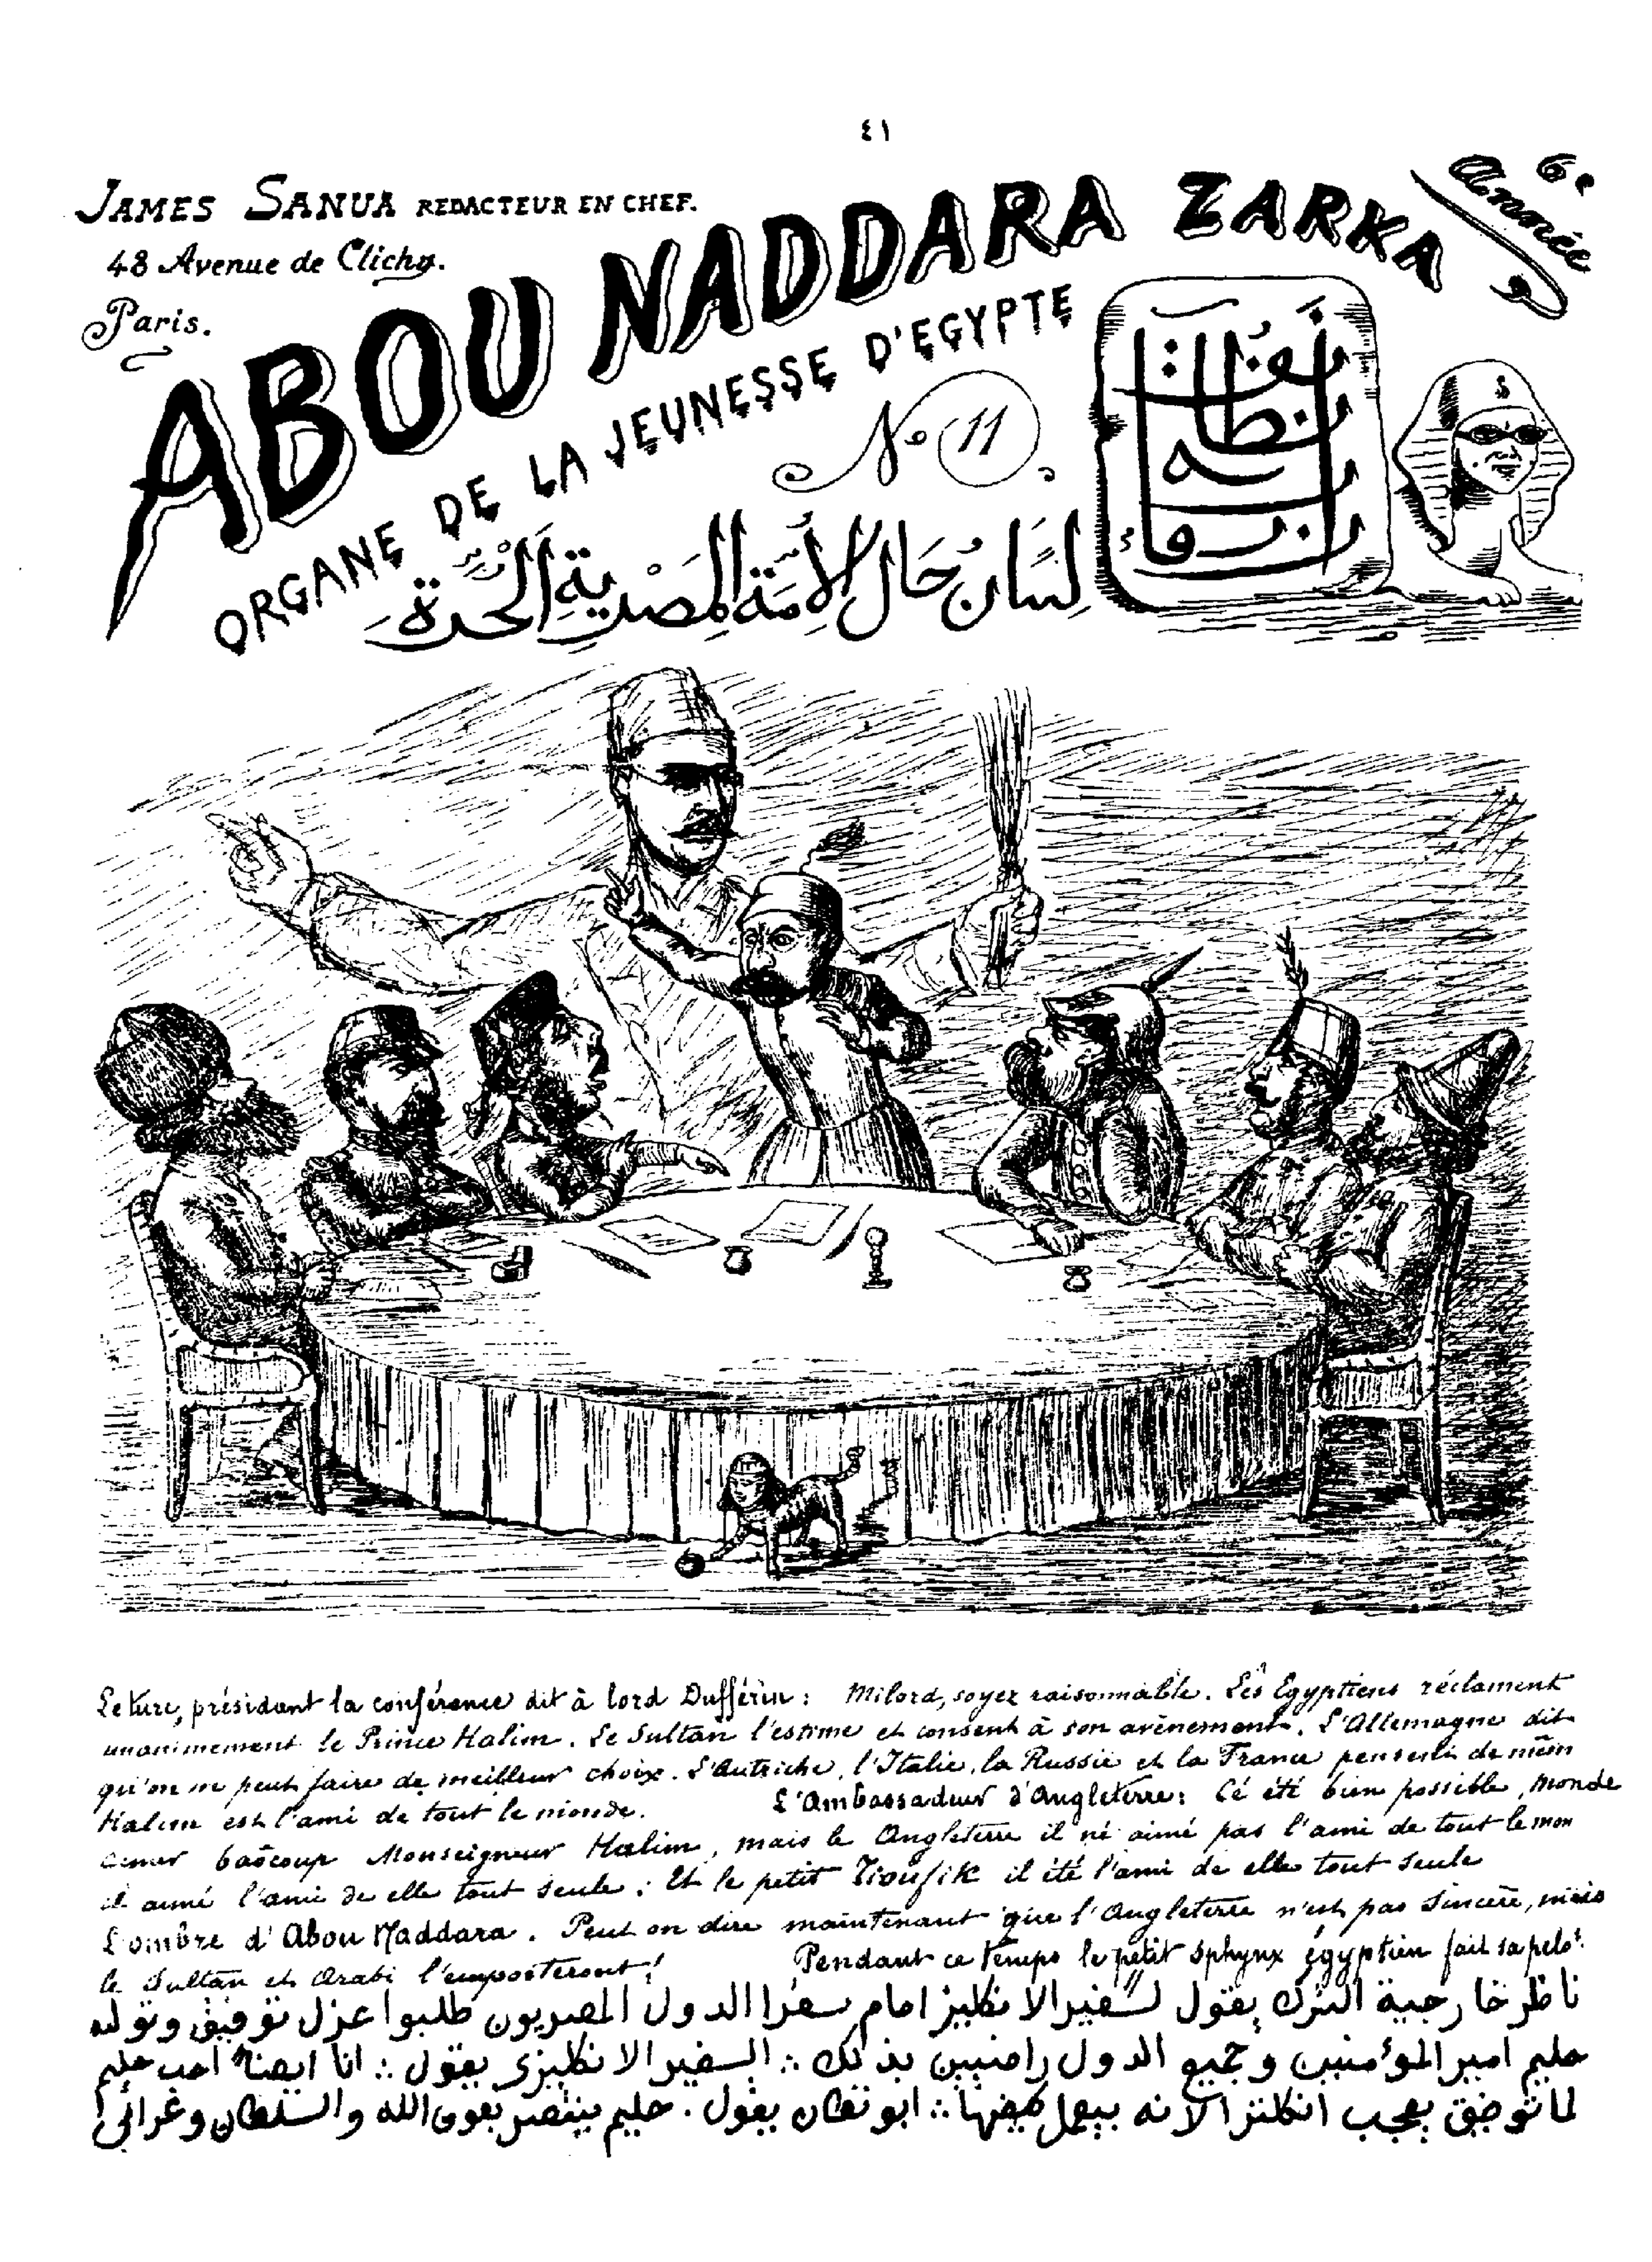 ٤١
JAMES SANUA REDACTEUR EN CHEF.
48 Avenue de Clichy.
Paris.
6e Année
ABOU NADDARA ZARKA
ORGANE DE LA JEUNESSE D'EGYPTE
No 11
لِسَان حَال الأمّة المصْرية الحُرّة
Le turc, présidant la conférence dit à lord Dufferin : Milord, soyez raisonnable. Les Egyptiens réclament
unanimement le Prince Halim. Le Sultan l'estime et consent à son avènement. L'Allemagne dit
qu'on ne peut faire de meilleur choix. L'Autriche, l'Italie, la Russie et la France pensent de mêm
Halim est l'ami de tout le monde. L'Ambassadeur d'Angleterre : Cé été bien possible, monde
aimer baôcoup Monseigneur Halim, mais le Angleterre il né aimé pas l'ami de tout le mon
il aimé l'ami de elle tout seule ; Et le petit Tioufik il été l'ami de elle tout seule
L'ombre d'Abou Naddara. Peut on dire maintenant que l'Angleterre n'est pas sincère, mais
le Sultan et Arabi l'emporteront ! Pendant ce temps le petit sphynx égyptien fait sa pelot.
ناظر خارجية الترك يقول لسفير الانكليز امام سفرا الدول المصريون طلبوا عزل توفيق وتوليه
حليم امير المؤمنين وجميع الدول راضيين بذلك ∴ السفير الانكليزى يقول ∴ انا ايضا احب حليم
لما توفيق يعجب انكلترا لانه بيعمل كيفها ∴ ابو نظاره يقول . حليم ينتصر بعون الله والسلطان وعرابى